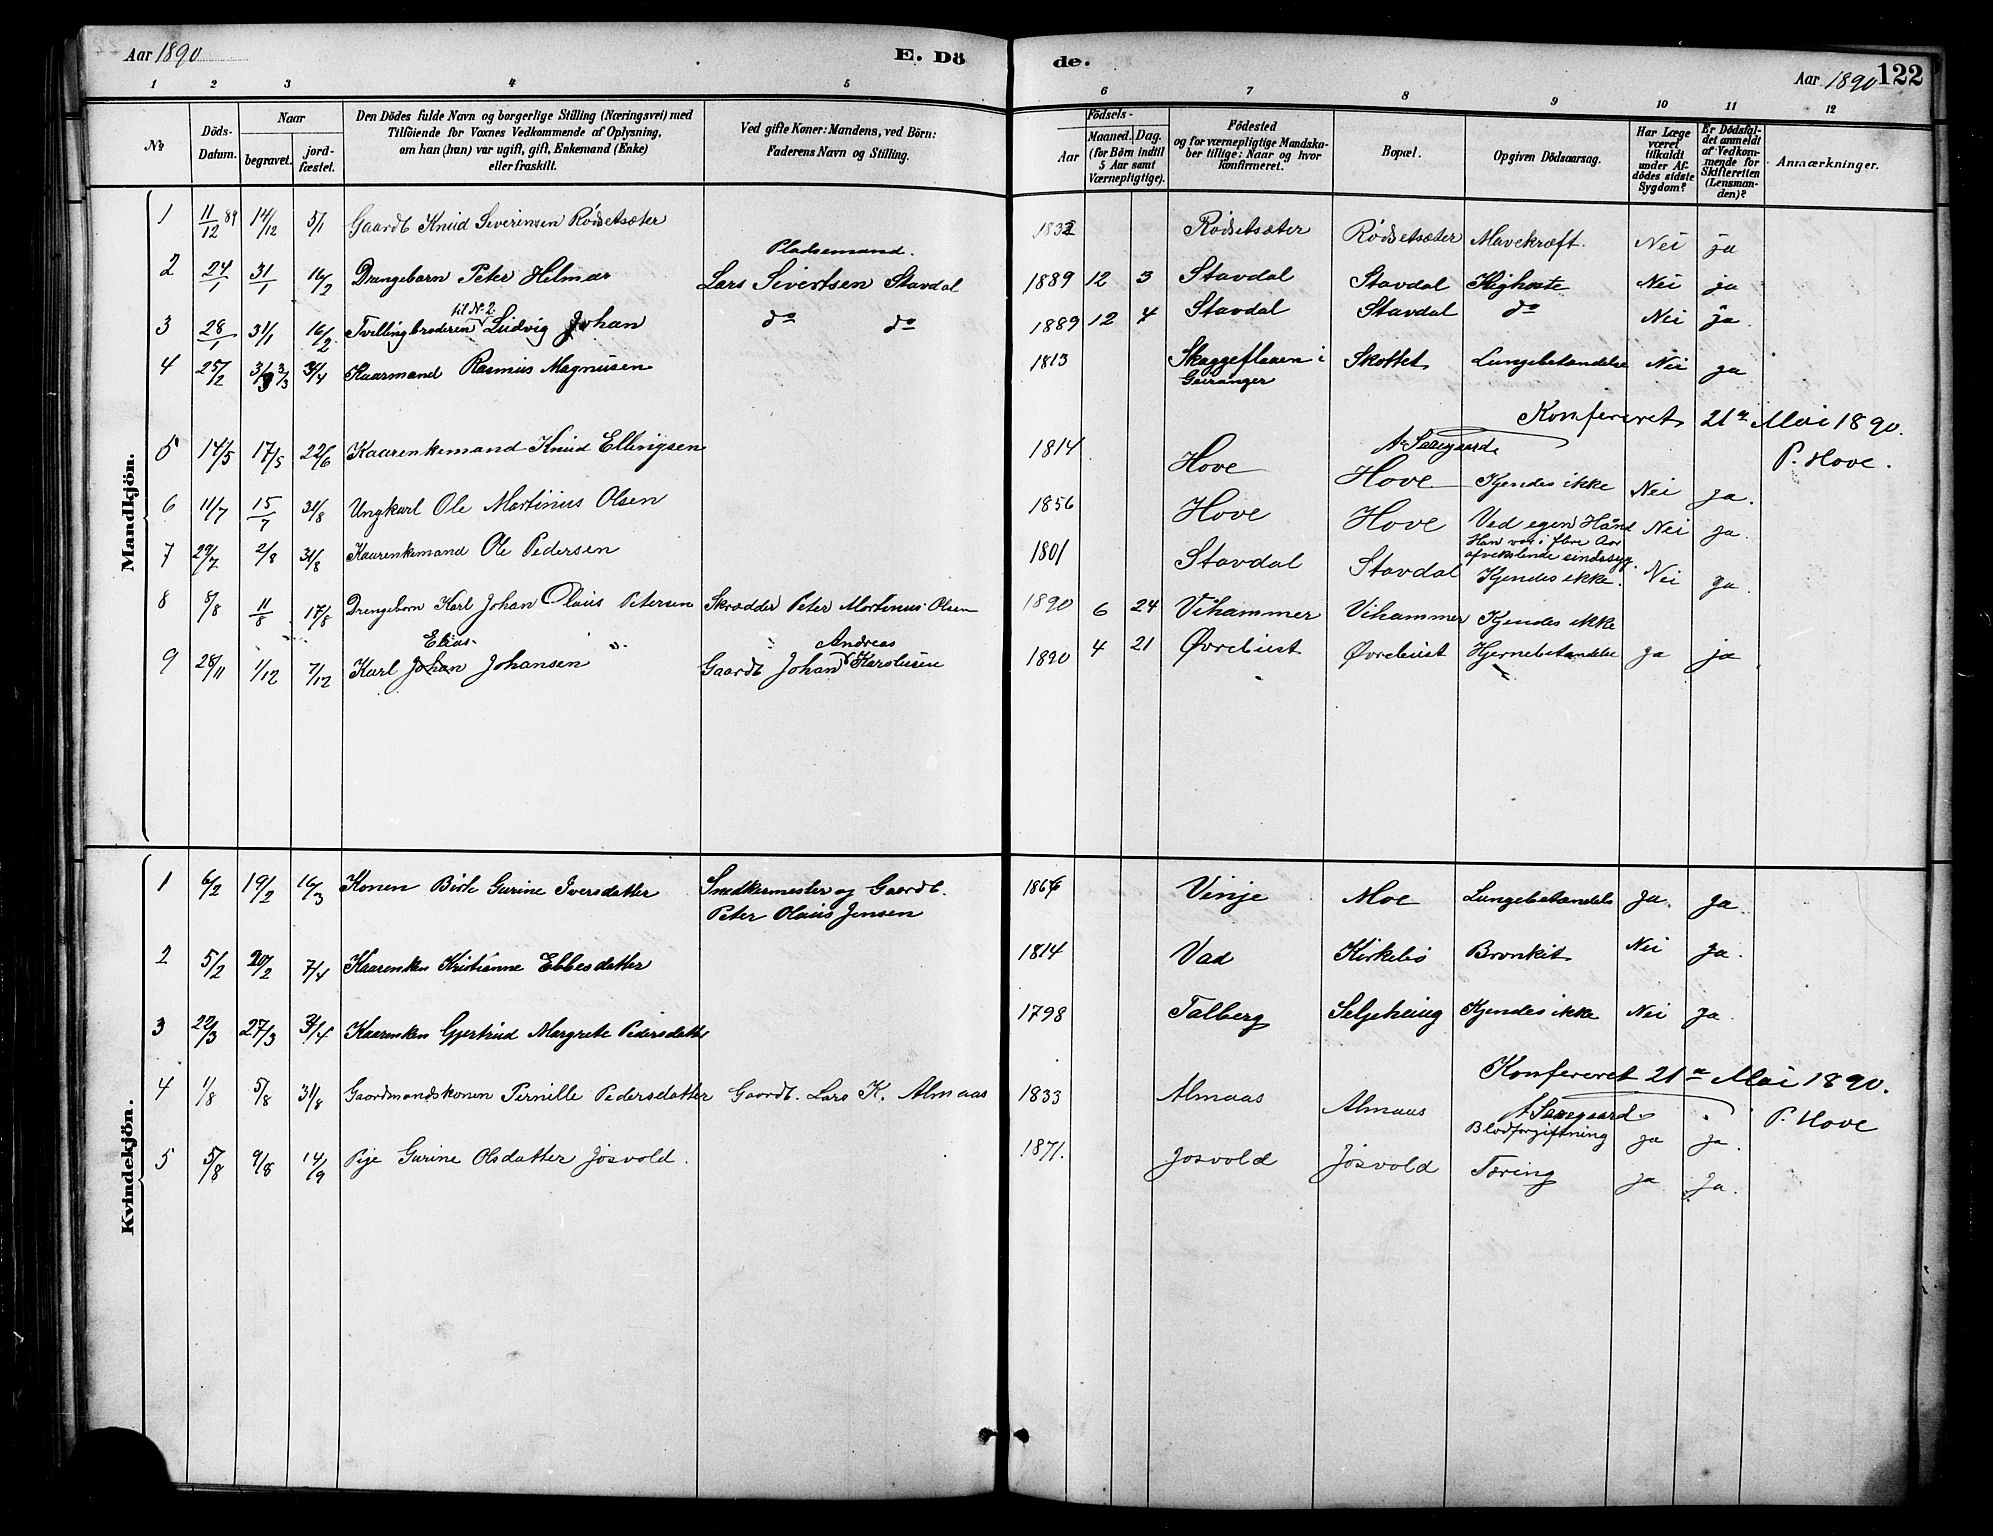 Aar 1890
E. Dö
de.
Aar 1890
122
1 2 3 4 5 6 7 8 9 10 11 12
No
Döds-Datum.
Naar
begravet.
jordfæstet.
Den Dödes fulde Navn og borgerlige Stilling (Næringsvei) med
Tilföiende for Voxnes Vedkommende af Oplysning,
om han (hun) var ugift, gift, Enkemand (Enke)
eller fraskilt.
Ved gifte Koner: Mandens, ved Börn:
Faderens Navn og Stilling.
Födsels-
Aar
Maaned. Dag.
(for Börn indtil
5 Aar samt
Værnepligtige).
Födested
og for værnepligtige Mandska-
ber tillige: Naar og hvor
konfirmeret.
Bopæl.
Opgiven Dödsaarsag.
Har Læge
været
tilkaldt
under Af-
dödes sidste
Sygdom?
Er Dödsfal-
det anmeldt
af Vedkom-
mende for
Skifteretten
(Lensman-
den)?
Anmærkninger.
Mandkjön.
1 11/12 89 14/12 5/1 Gaardb Knud Severinsen Rödsetsæter 1832 Rödsetsæter Rödsetsæter Mavekræft. Nei ja
Pladsemand.
2 24/1 31/1 16/2 Drengebarn Peter Hilmar Lars Sivertsen Stavdal 1889 12 3 Stavdal Stavdal Kighoste Nei ja
til No 2
3 28/1 31/1 16/2 Tvillingbroderen Ludvig Johan do do 1889 12 4 Stavdal Stavdal do Nei ja
4 25/2 3/3 3/3 3/4 Kaarmand Rasmus Magnusen 1813 Skaggeflaaen i Geiranger Skottet Lungebetændelse Nei ja
Konfereret 21de Mai 1890.
A. Saaegaard
P. Hove.
5 14/5 17/5 22/6 Kaarenkemand Knud Ellingsen 1814 Hove Hove Kjendes ikke Nei ja.
6 11/7 15/7 31/8 Ungkarl Ole Martinius Olsen 1856 Hove Hove Ved egen Hånd Nei ja.
Han var i flere Aar
afvekslende sindssyg.
7 29/7 2/8 31/8 Kaarenkemand Ole Pedersen 1801 Stavdal Stavdal Kjendes ikke. Nei ja.
8 8/8 11/8 17/8 Drengeborn Karl Johan Olaus Petersen Skrædder Peter Martinus Olsen 1890 6 24 Vihammer Vihammer Kjendes ikke
Elias Andreas
9 28/11 1/12 7/12 Karl Johan Johansen Gaardb Johan Karolusen 1890 4 21 Øvrebust Øvrebust Hjernebetændelse ja ja
Kvindekjön.
1 6/2 19/2 16/3 Konen Birte Gurine Iversdatter Snedkermester og Gaardb. 1864 Vinje Moe Lungebetændels Ja Ja
Peter Olaus Jensen
2 5/2 20/2 7/4 Kaarenken Kristianne Ebbesdatter 1814 Vad Kirkebö Bronkit Nei Ja.
3 22/3 27/3 3/4 Kaarenken Gjertrud Margrete Pedersdatter 1798 Talberg Seljehaug Kjendes ikke Nei Ja
Konfereret 21de Mai 1890.
A Saaegaard.
P. Hove
4 1/8 5/8 31/8 Gaardmandskonen Pernille Pedersdatter Gaardb. Lars K. Almaas 1833 Almaas Almaas Blodforgiftning ja ja.
5 5/8 9/8 14/9 Pige Gurine Olsdatter Jösvold. 1871. Jösvold Jösvold Tæring ja Ja.